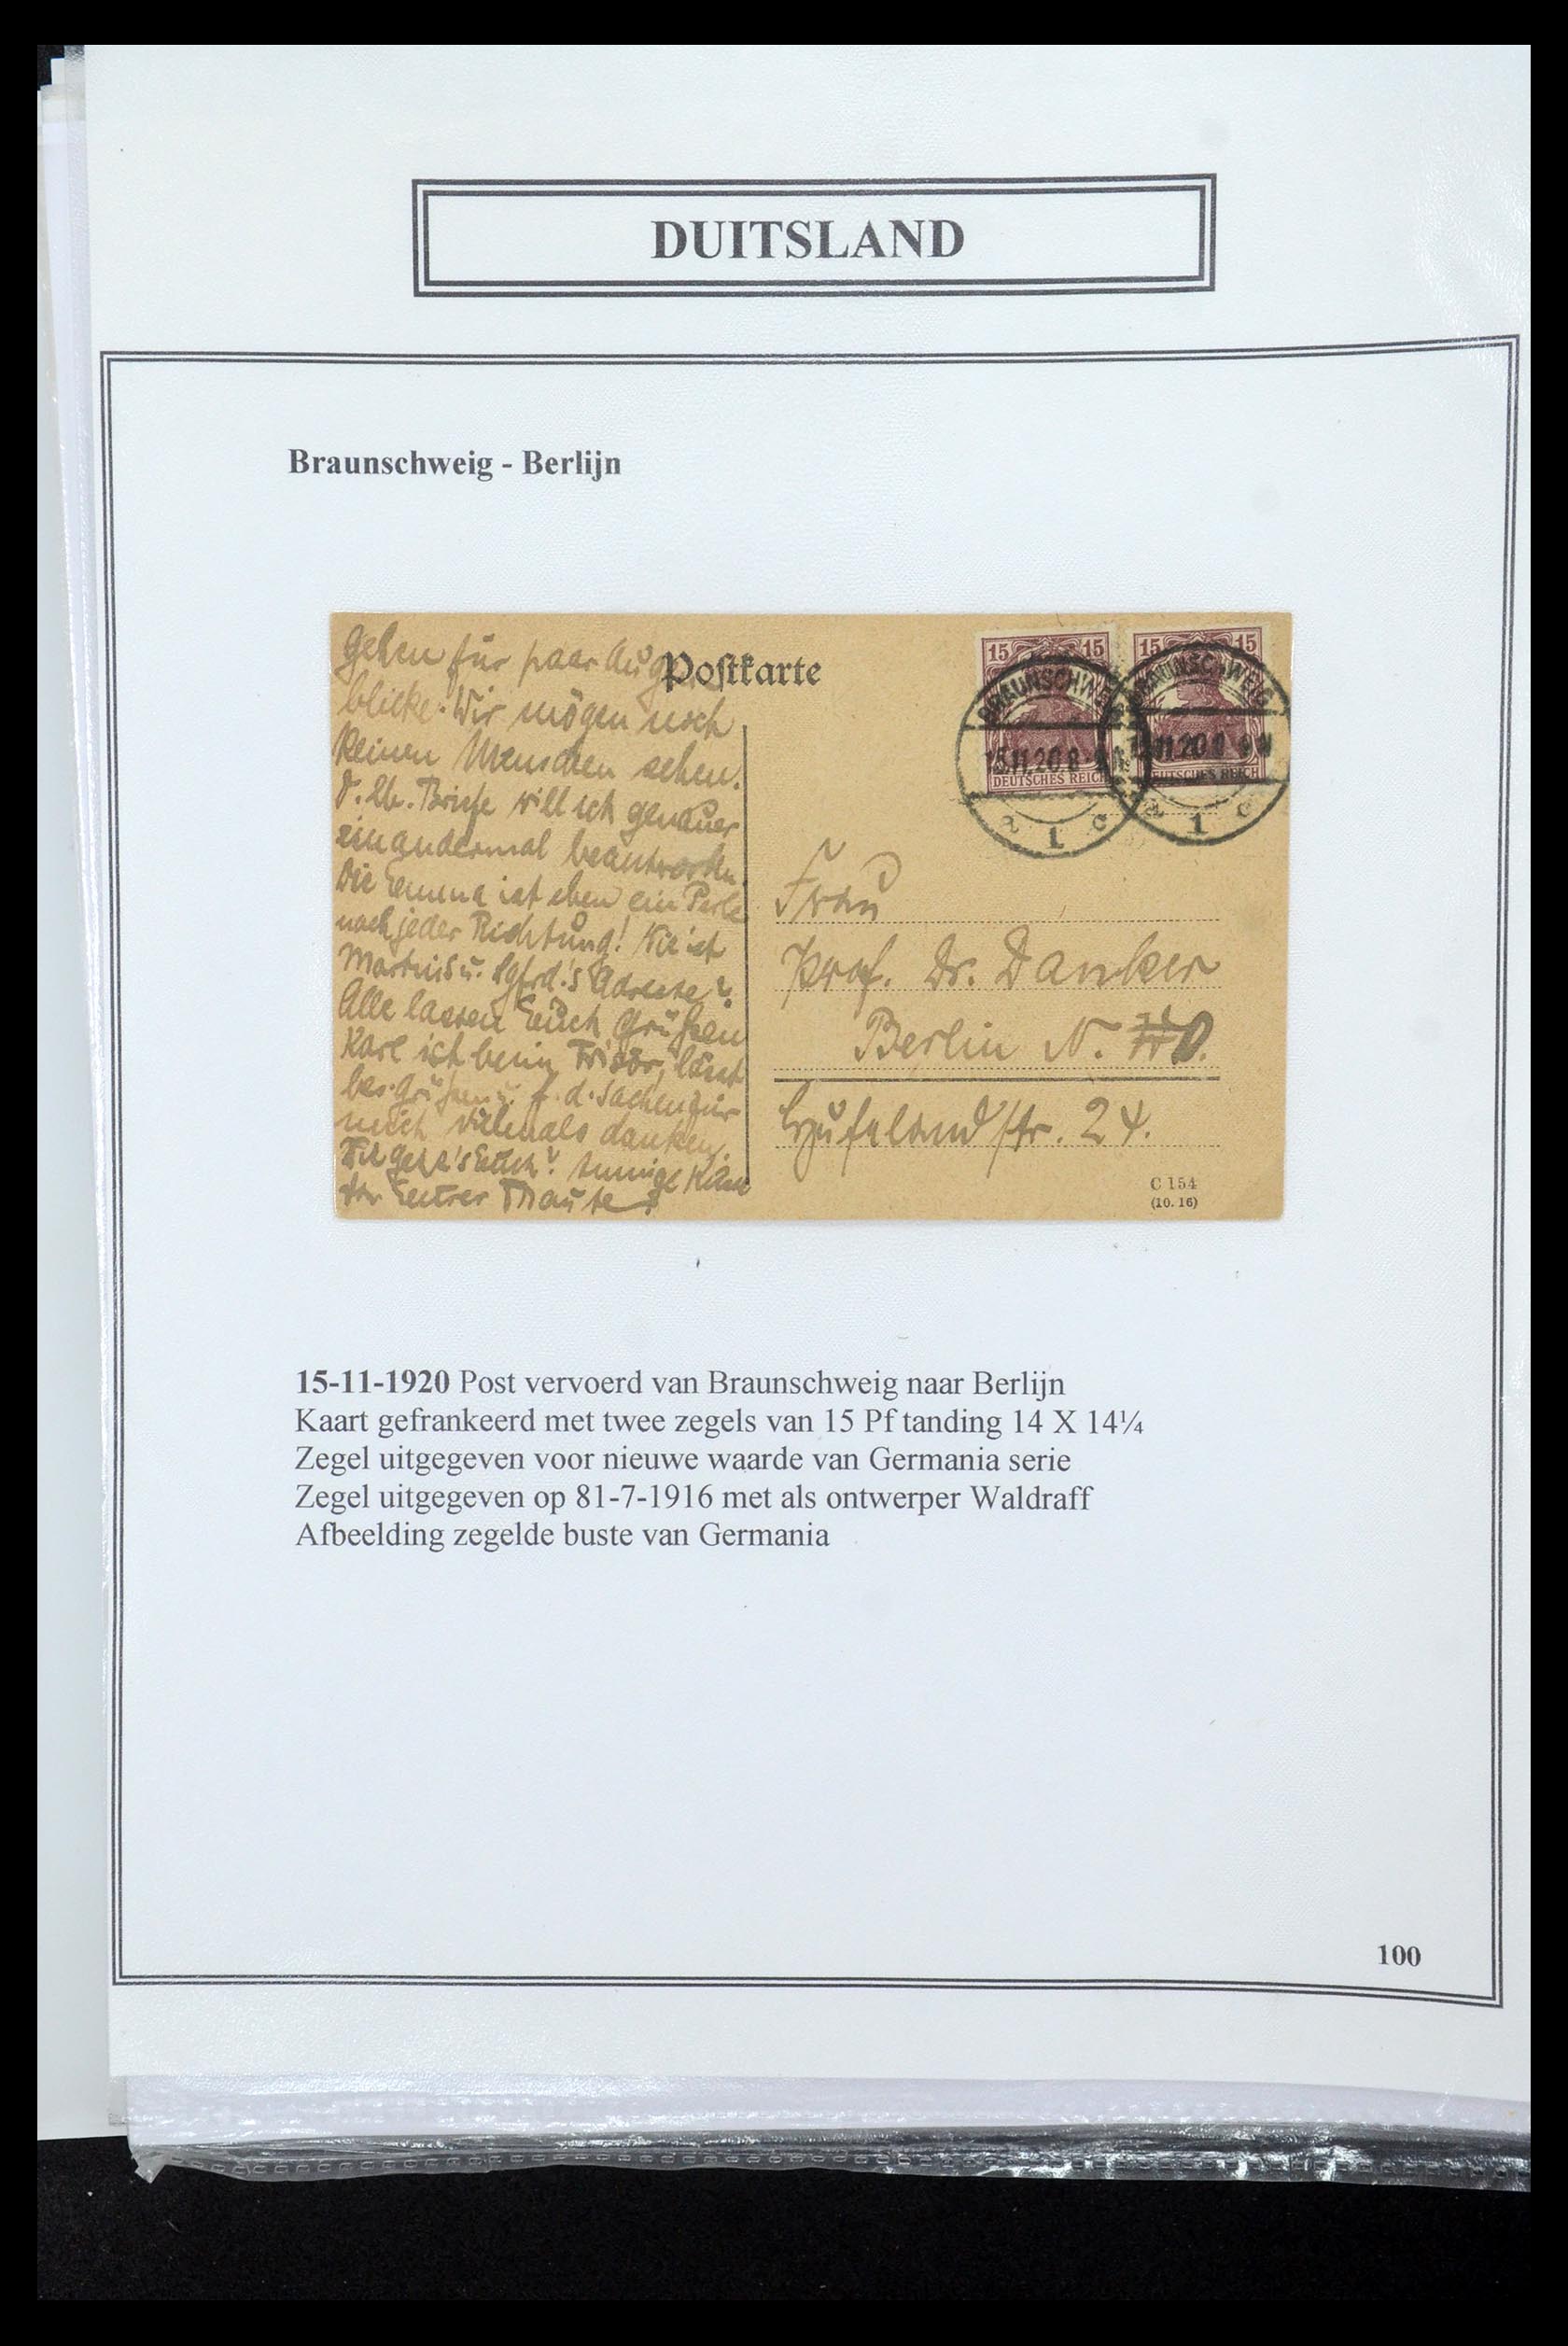 DUITSLAND
Braunschweig - Berlijn
gehen für paar Augen
blicke. Wir mögen noch
keinen Menschen sehen.
D. lb. Briefe will ich genauer
ein andermal beantworten.
Die Emma ist eben ein Perle
nach jeder Richtung! Wie ist
Martins u. Sgfrd.'s Adresse?
Alle lassen Euch grüßen
Karl ist beim Frisör, lässt
bes. grüßen u. f. d. Sachen für
mich vielmals danken.
Wie geht's Euch? Innige
Eurer
Postkarte
15 15
15 15
BRAUNSCHWEIG
15.11.20 8-
DEUTSCHES REICH
a 1 c
BRAUNSCHWEIG
11.20
DEUTSCHES REICH
a 1 c
Frau
Prof. Dr. Danker
Berlin N. O.
Hufelandstr. 24.
C 154
(10. 16)
15-11-1920 Post vervoerd van Braunschweig naar Berlijn
Kaart gefrankeerd met twee zegels van 15 Pf tanding 14 X 14¼
Zegel uitgegeven voor nieuwe waarde van Germania serie
Zegel uitgegeven op 81-7-1916 met als ontwerper Waldraff
Afbeelding zegelde buste van Germania
100